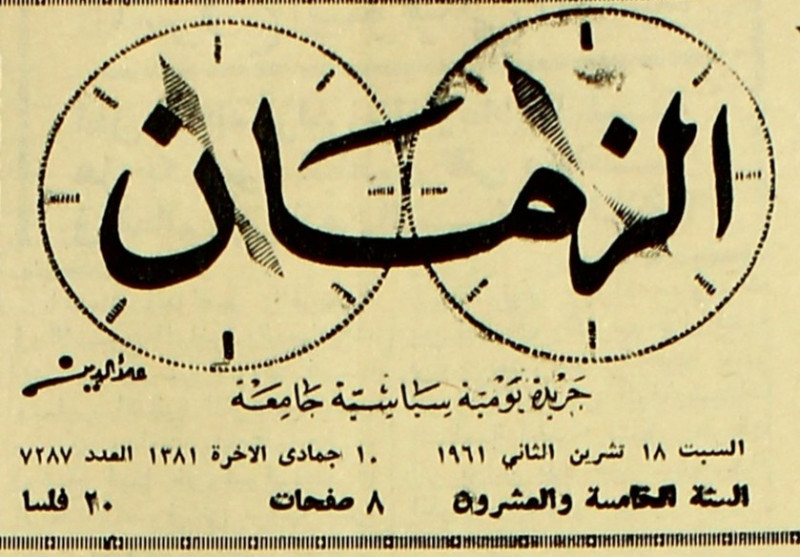 الزمان
علاءالدين
جريدة يومية سياسية جامعة
السبت ١٨ تشرين الثاني ١٩٦١ ١٠ جمادى الاخرة ١٣٨١ العدد ٧٢٨٧
السنة الخامسة والعشرون ٨ صفحات ٢٠ فلسا